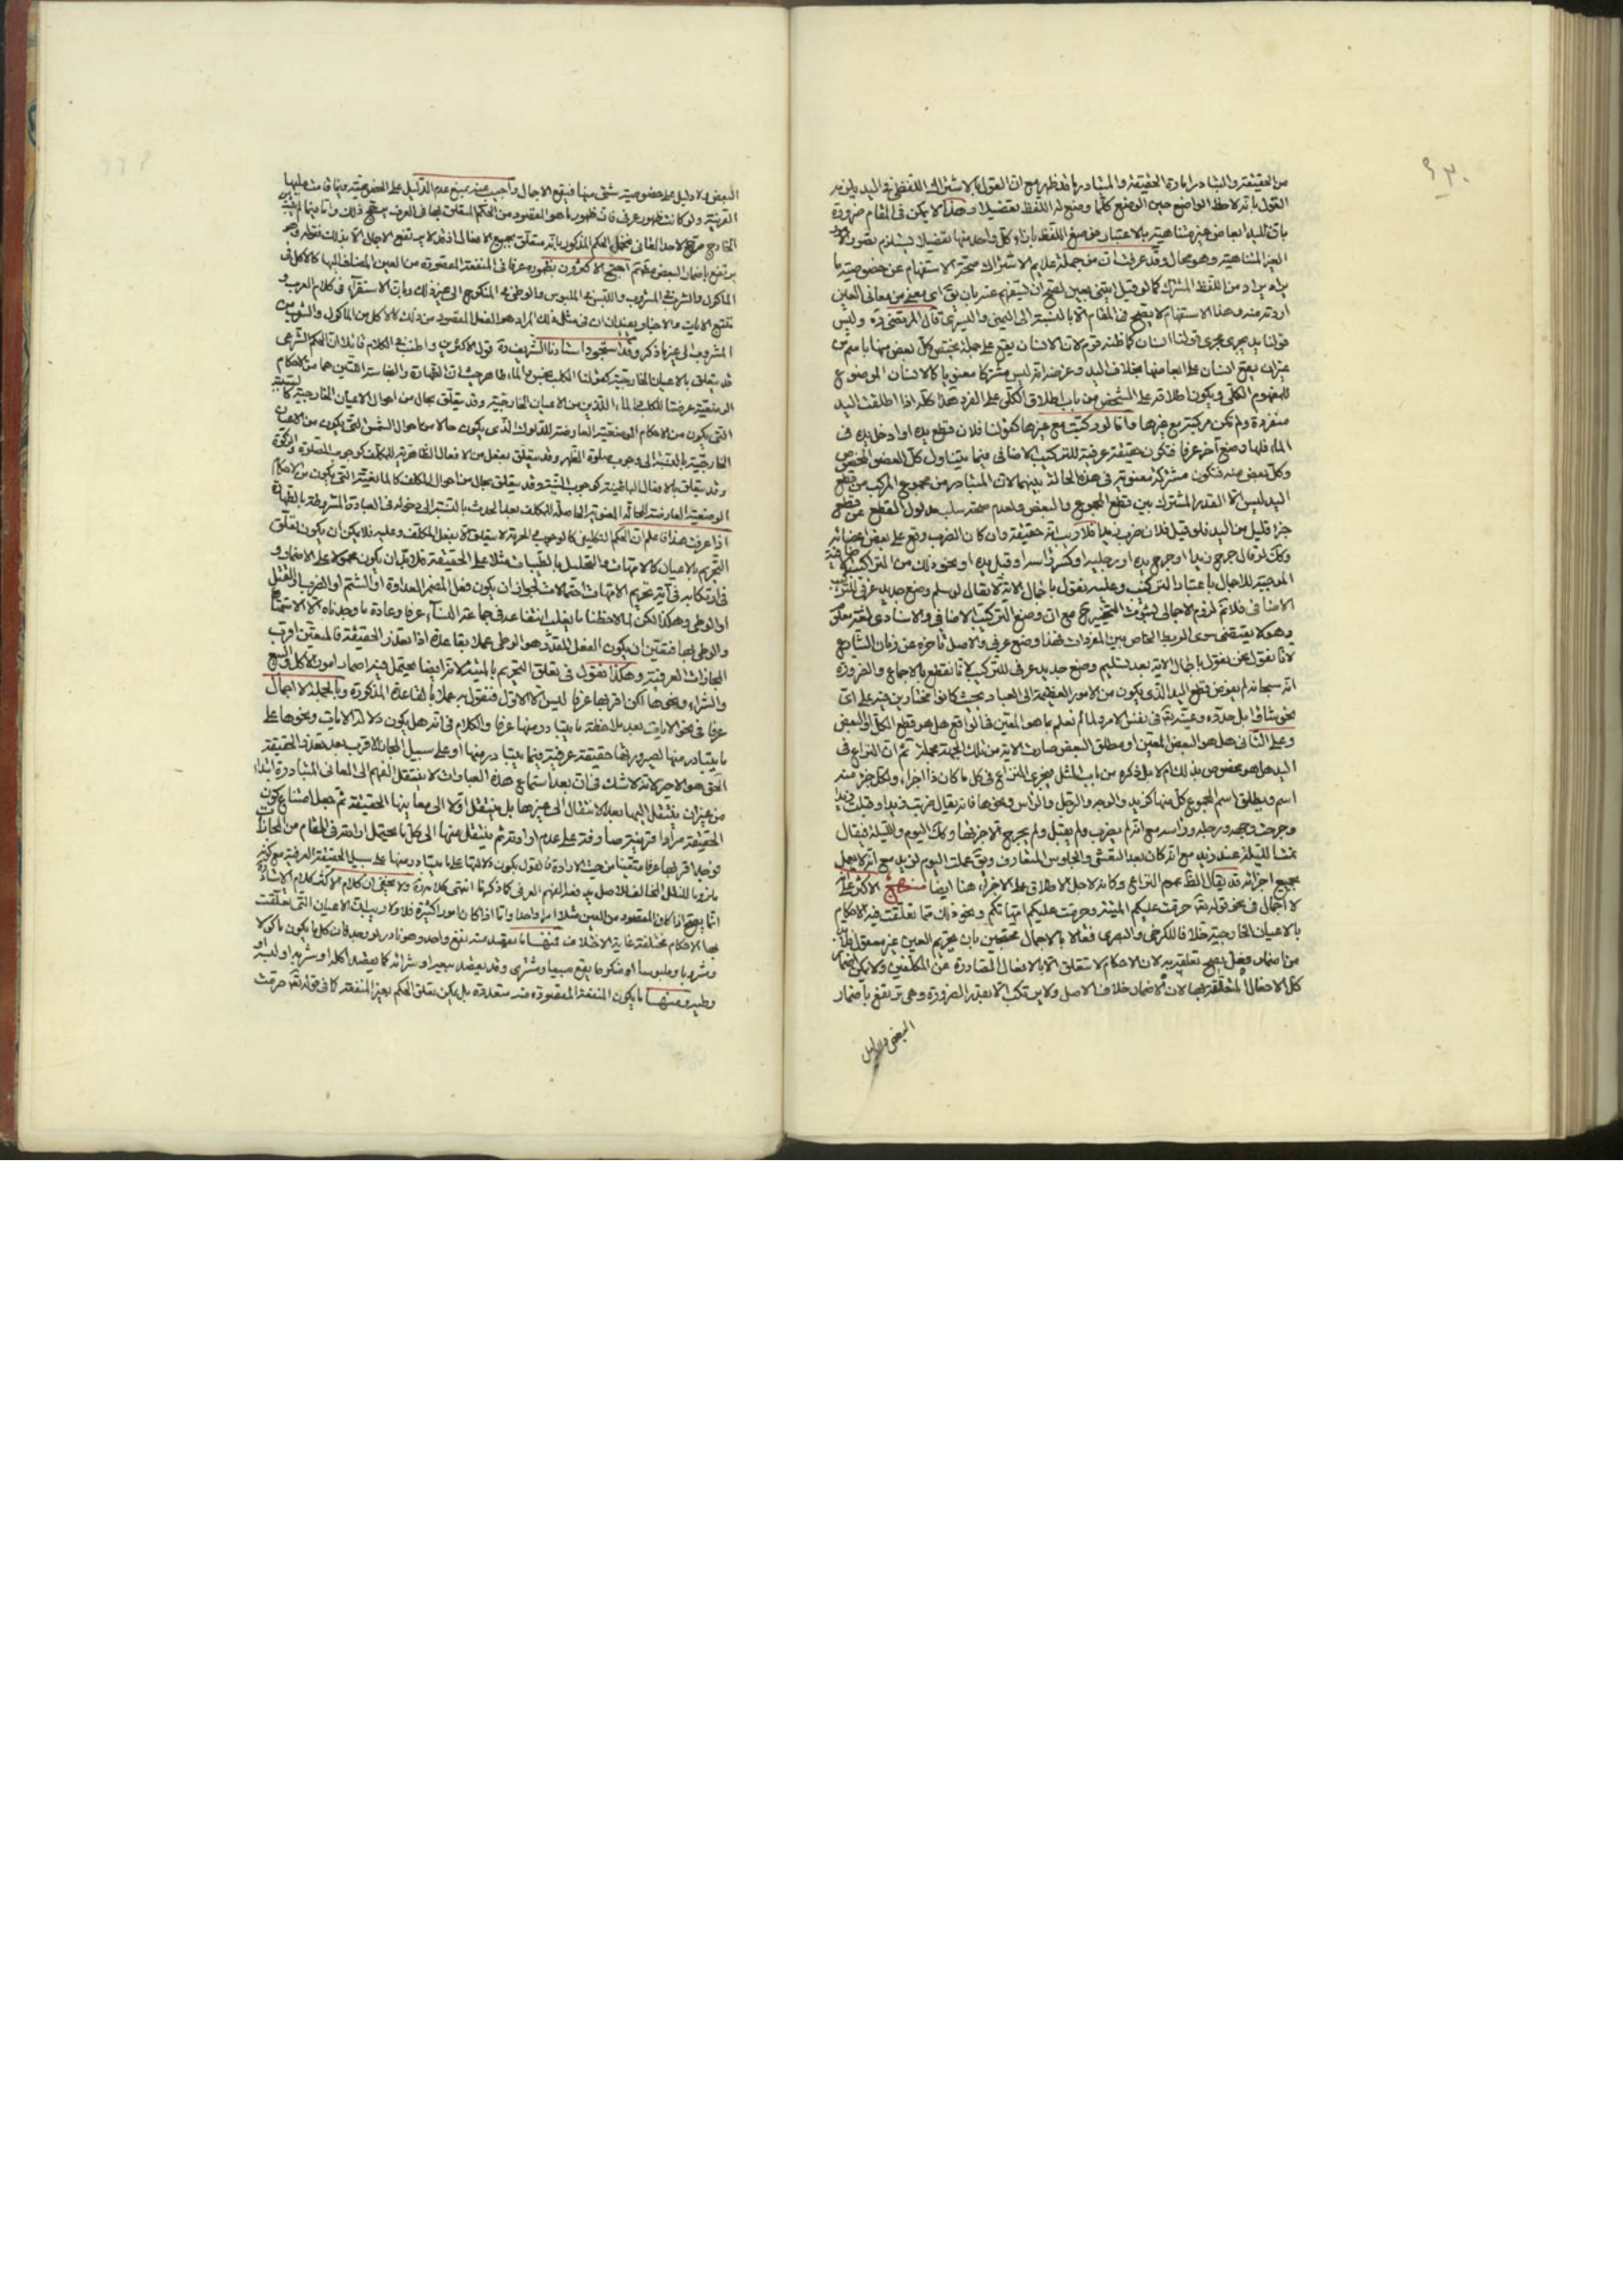 من الحقيقة والتبادر امارة الحقيقة والمتبادر ما قد ظهر مع ان القول بالاشتراك اللفظي في اليد
القول بانه لاحظ الواضع حين الوضع كلها وضع له اللفظ تفصيلا وهذا لا يمكن في المقام ضرورة
بان لليد ابعاض غير متناهية بالاعتبار اللفظ بازاء كل واحد منها تفصيلا يستلزم تصور
الغير المتناهية وهو محال وقد عرفت ان من جملة علايم الاشتراك صحة الاستفهام عن خصوصية ما
يراد من اللفظ المشترك كما لو قيل ايتني بعين لصح ان يستفهم عنه بان يق اي معنى من معاني العين
اردته منه وهذا الاستفهام لا يصح في المقام الا بالنسبة الى اليمنى واليسرى قال المرتضى ره وليس
قولنا يد يجري مجرى قولنا انسان كما ظنه قوم لان الانسان يقع على جملة يختص كل بعض منها باسم من
غير ان يقع انسان على ابعاضها بخلاف اليد وغرضه انه ليس مشتركا معنويا كالانسان الموضوع
للمفهوم الكلي ويكون اطلاقه على الشخص من باب اطلاق الكلي على الفرد هذا كله اذا اطلقت اليد
منفردة ولم تكن مركبة مع غيرها واما لو ركبت مع غيرها كقولنا فلان قطع يده او ادخل يده في
الماء فلها وضع آخر عرفا فتكون حقيقة عرفية للتركيب الاضافي فيما يتناول كل العضو المخصوص
وكل بعض منه فتكون مشتركة معنوية في هذه الحالة بينهما لان المتبادر من مجموع المركب من قطع
اليد ليس الا القدر المشترك بين قطع المجموع والبعض ولعدم صحة سلب مدلول القطع عن قطع
جزء قليل من اليد فلو قيل فلان ضرب زيدا فلا ريب انه حقيقة وان كان الضرب وقع على بعض اعضائه
وكك لو قال جرح زيدا او جرح يده او رجليه او كسر راسه او قبل يده او نحو ذلك من التراكيب
الموجبة للاجمال باعتبار التركيب وعليه نقول باجمال الاية لا يقال لو سلم وضع جديد عرفي للتركيب
الاضافي فلا تم لزوم الاجمال لثبوت التخيير ح مع ان وضع التركيب الاضافي والاسنادي لغة معلوم
وهو لا يقتضي سوى الربط الخاص بين المفردات فهذا وضع عرفي والاصل تاخره عن زمان الشارع
لانا نقول نحن نقول باجمال الاية بعد تسليم وضع جديد عرفي للتركيب لانا نقطع بالاجماع والضرورة
انه سبحانه لم يفوض قطع اليد الذي يكون من الامور العظيمة الى العباد بحيث كانوا مختارين فيه على اي
نحو شاؤا بل حدده وعينه في نفس الامر ولما لم نعلم ما هو المعين في الواقع هل هو قطع الكل او البعض
وعلى الثاني هل هو البعض المعين او مطلق البعض صارت الاية من تلك الجهة مجملة ثم ان النزاع في
اليد هل هو مخصوص بذلك ام لا بل ذكره من باب المثل ويجري النزاع في كل ما كان ذا اجزاء ولكل جزء منه
اسم ويطلق اسم المجموع كل منها كزيد والوجه والرجل والراس ونحوها فانه يقال ضربت زيدا وقبلت
وجرحت وجهه ورجليه وراسه مع انه لم يضرب ولم يقبل ولم يجرح الا جزئها وكك اليوم والليلة فيقال
تمشا الليلة عند زيد مع انه كان بعد التعشي والجلوس المتعارف ويق عملت اليوم لزيد مع انه لا يعمل
بجميع اجزائه قد يقال الظ عموم النزاع وكانه لاجل الاطلاق على الاجزاء هنا ايضا منهاج الاكثر على انه
لا اجمال في نحو قوله تعالى حرمت عليكم الميتة وحرمت عليكم امهاتكم ونحو ذلك مما تعلقت فيه الاحكام
بالاعيان الخارجية خلافا للكرخي والبصري فقالا بالاجمال محتجين بان تحريم العين غير معقول فلا بد
من اضمار فعل يصح تعلقه به لان الاحكام لا تتعلق الا بالافعال المقدورة عن المكلفين ولا يمكن اضمار
كل الافعال المتعلقة بها لان الاضمار خلاف الاصل ولا يرتكب الا بقدر الضرورة وهي ترتفع باضمار
البعض ولا دليل
البعض ولا دليل على خصوصية شيء منها فيقع الاجمال واجيب عنه بمنع عدم الدليل على الخصوصية
القرينة ولو كانت ظهور عرفي فان ظهور ما هو المقصود من الحكم المتعلق بها في العرف يرجح ذلك
يرتفع باضمار البعض احتج الاكثرون بظهوره عرفا في المنفعة المقصودة من العين المضاف اليها كالاكل في
الماكول والشرب في المشروب واللبس في الملبوس والوطي في المنكوح الى غير ذلك وبان الاستقراء في كلام العرب و
تتبع الايات والاخبار يفيدان ان في مثل ذلك المراد هو الفعل المقصود من ذلك كالاكل من الماكول والشرب من
المشروب الى غير ما ذكر وقد استجود استادنا الشريف ره قول الاكثرين واطنب في الكلام قائلا ان الحكم الشرعي
قد يتعلق بالاعيان الخارجية كقولنا الكلب نجس والماء طاهر حيث ان الطهارة والنجاسة اللتين هما من الاحكام
الوضعية عرضتا للكلب والماء اللذين من الاعيان الخارجية وقد يتعلق بحال من احوال الاعيان الخارجية
التي يكون من الاحكام الوضعية العارضة للدلوك الذي يكون حالا من احوال الشمس التي يكون من الاعيان
الخارجية بالنسبة الى وجوب صلوة الظهر وقد يتعلق بفعل من الافعال الظاهرية للمكلف كوجوب الصلوة والزكوة
وقد يتعلق بالافعال الباطنية كوجوب النية وقد يتعلق بحال من احوال المكلف كالمانعية التي يكون من الاحكام
الوضعية العارضة للحالة المعنوية الحاصلة للمكلف بعد الحدث بالنسبة الى دخوله في العبادة المشروطة بالطهارة
اذا عرفت هذا فاعلم ان الحكم التكليفي كالوجوب والحرمة لا يتعلق الا بفعل المكلف وعليه فلا يمكن ان يكون تعلق
التحريم بالاعيان كالامهات والتحليل بالطيبات مثلا على الحقيقة فلا بد ان يكون محمولا على الاضمار و
في ارتكابه في آية تحريم الامهات احتمالات لجواز ان يكون فعل المضمر العداوة او الشتم او الضرب او القتل
او الوطي وهكذا لكن لما لاحظنا ما يغلب انتفاعه في جماعة النساء عرفا وعادة ما وجدناه الا الاستمتاع
والوطي بها فتعين ان يكون الفعل المقدر هو الوطي عملا بقاعدة اذا تعذر الحقيقة فالمتعين اقرب
المجازات العرفية وهكذا نقول في تعلق التحريم بالميتة لانه ايضا يحتمل فيه اضمار امور كالاكل والبيع
والشراء ونحوها لكن اقربها عرفا ليس الا الاول فنقول به عملا بالقاعدة المذكورة وبالجملة لا اجمال
عرفا في نحو الايات بعد ملاحظة ما يتبادر منها عرفا والكلام في انه هل يكون دلالة الايات ونحوها على
ما يتبادر منها لصيرورتها حقيقة عرفية فيما يتبادر منها او على سبيل المجاز الاقرب بعد تعذر الحقيقة
الحق هو الاخير لانه لا شك في ان بعد استماع هذه العبارات لا ينتقل الفهم الى المعاني المتبادرة ابتداء
من غير ان ينتقل اليها بعد الانتقال الى غيرها بل ينتقل اولا الى معانيها الحقيقة ثم جعل امتناع كون
الحقيقة مرادا قرينة صارفة على عدم ارادته ثم ينتقل منها الى كل ما يحتمل ارادته في المقام من المجازات
فوجد اقربها عرفا متعينا من حيث الارادة فالقول بكون دلالتها على ما يتبادر منها على سبيل الحقيقة العرفية مع كونه
ملزوما للنقل المخالف للاصل يدفعه الفهم العرفي كما ذكرنا انتهى كلامه ره ولا يخفى ان كلام الاكثر ككلام الاستاد
انما يصح اذا كان المقصود من العين مثلا امرا واحدا واما اذا كان امورا كثيرة فلا ولا ريب ان الاعيان التي تعلقت
بها الاحكام مختلفة غاية الاختلاف فمنها ما يقصد منه نفع واحد وهو نادر لو وجد فان كل ما يكون ماكولا
ومشروبا وملبوسا او منكوحا يقع مبيعا ومشترى وقد يقصد بيعه او شرائه كما يقصد اكله او شربه او لبسه او
وطيه ومنها ما يكون المنفعة المقصودة منه متعددة بل يمكن تعلق الحكم بغير المنفعة كما في قوله تعالى حرمت